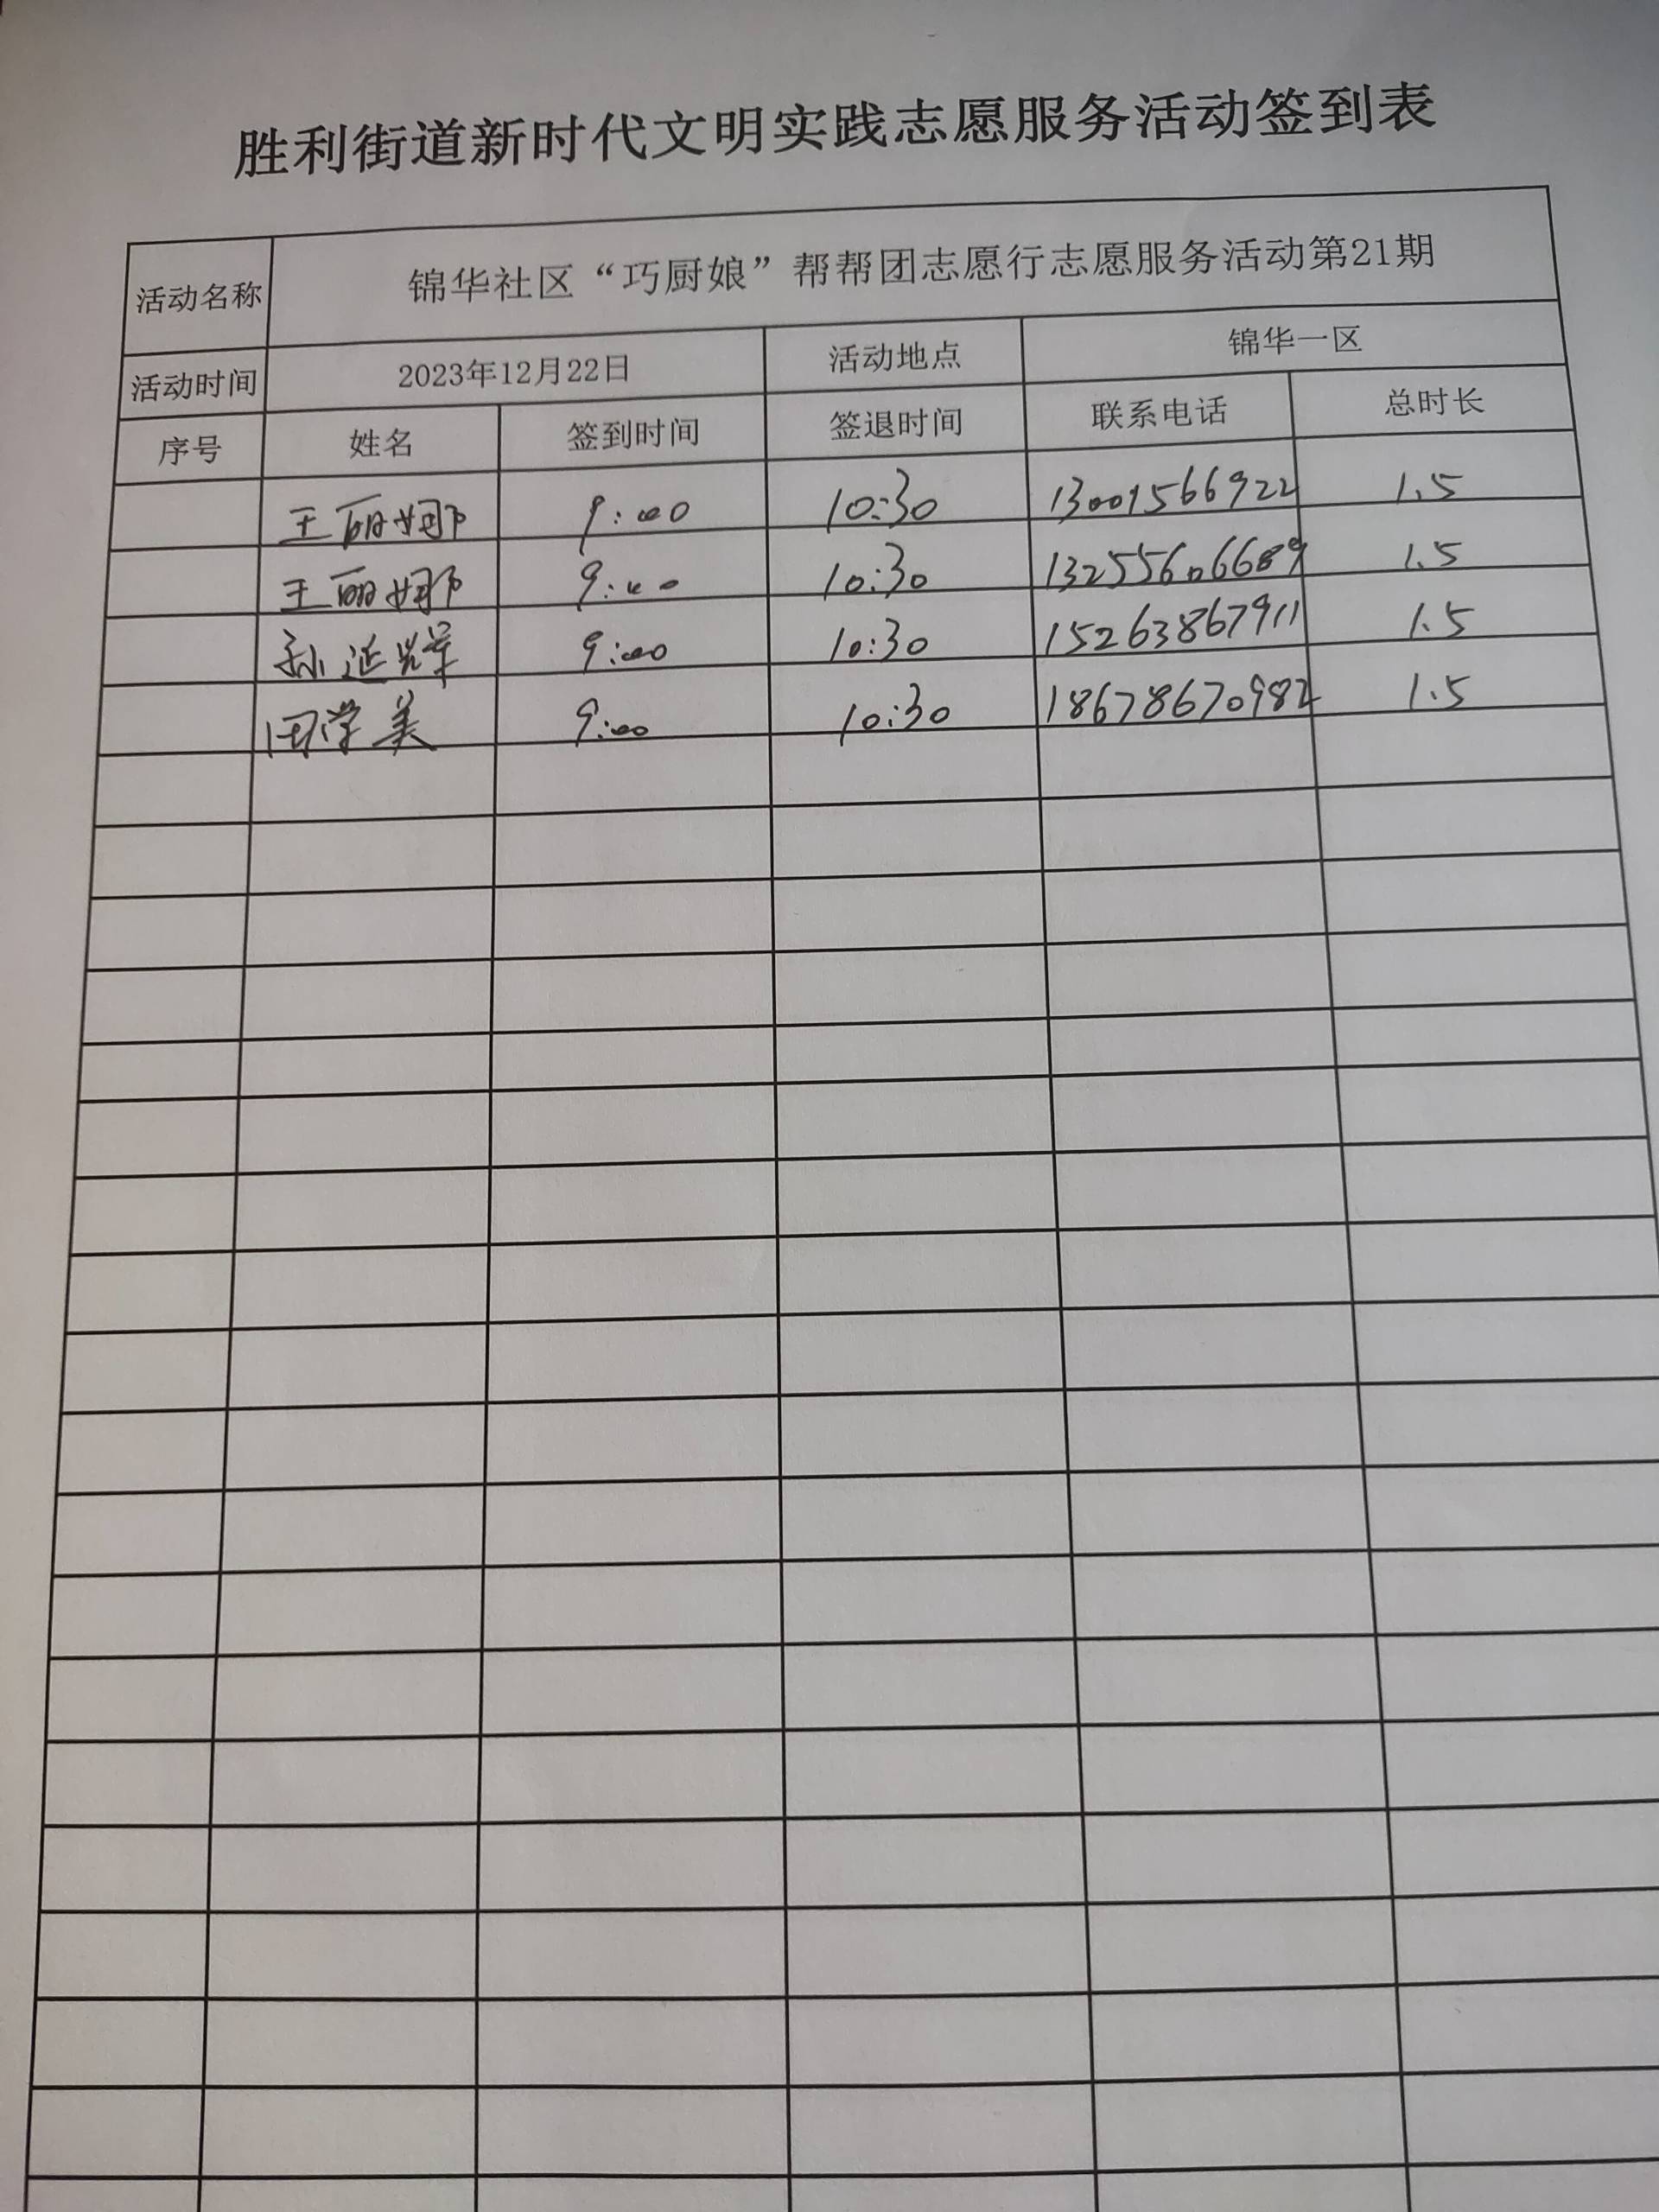 胜利街道新时代文明实践志愿服务活动签到表
活动名称 锦华社区“巧厨娘”帮帮团志愿行志愿服务活动第21期
活动时间 2023年12月22日 活动地点 锦华一区
序号 姓名 签到时间 签退时间 联系电话 总时长
王丽娜 9:00 10:30 13001566922 1.5
王丽娜 9:00 10:30 13255606689 1.5
孙延辉 9:00 10:30 15263867911 1.5
田学美 9:00 10:30 18678670982 1.5